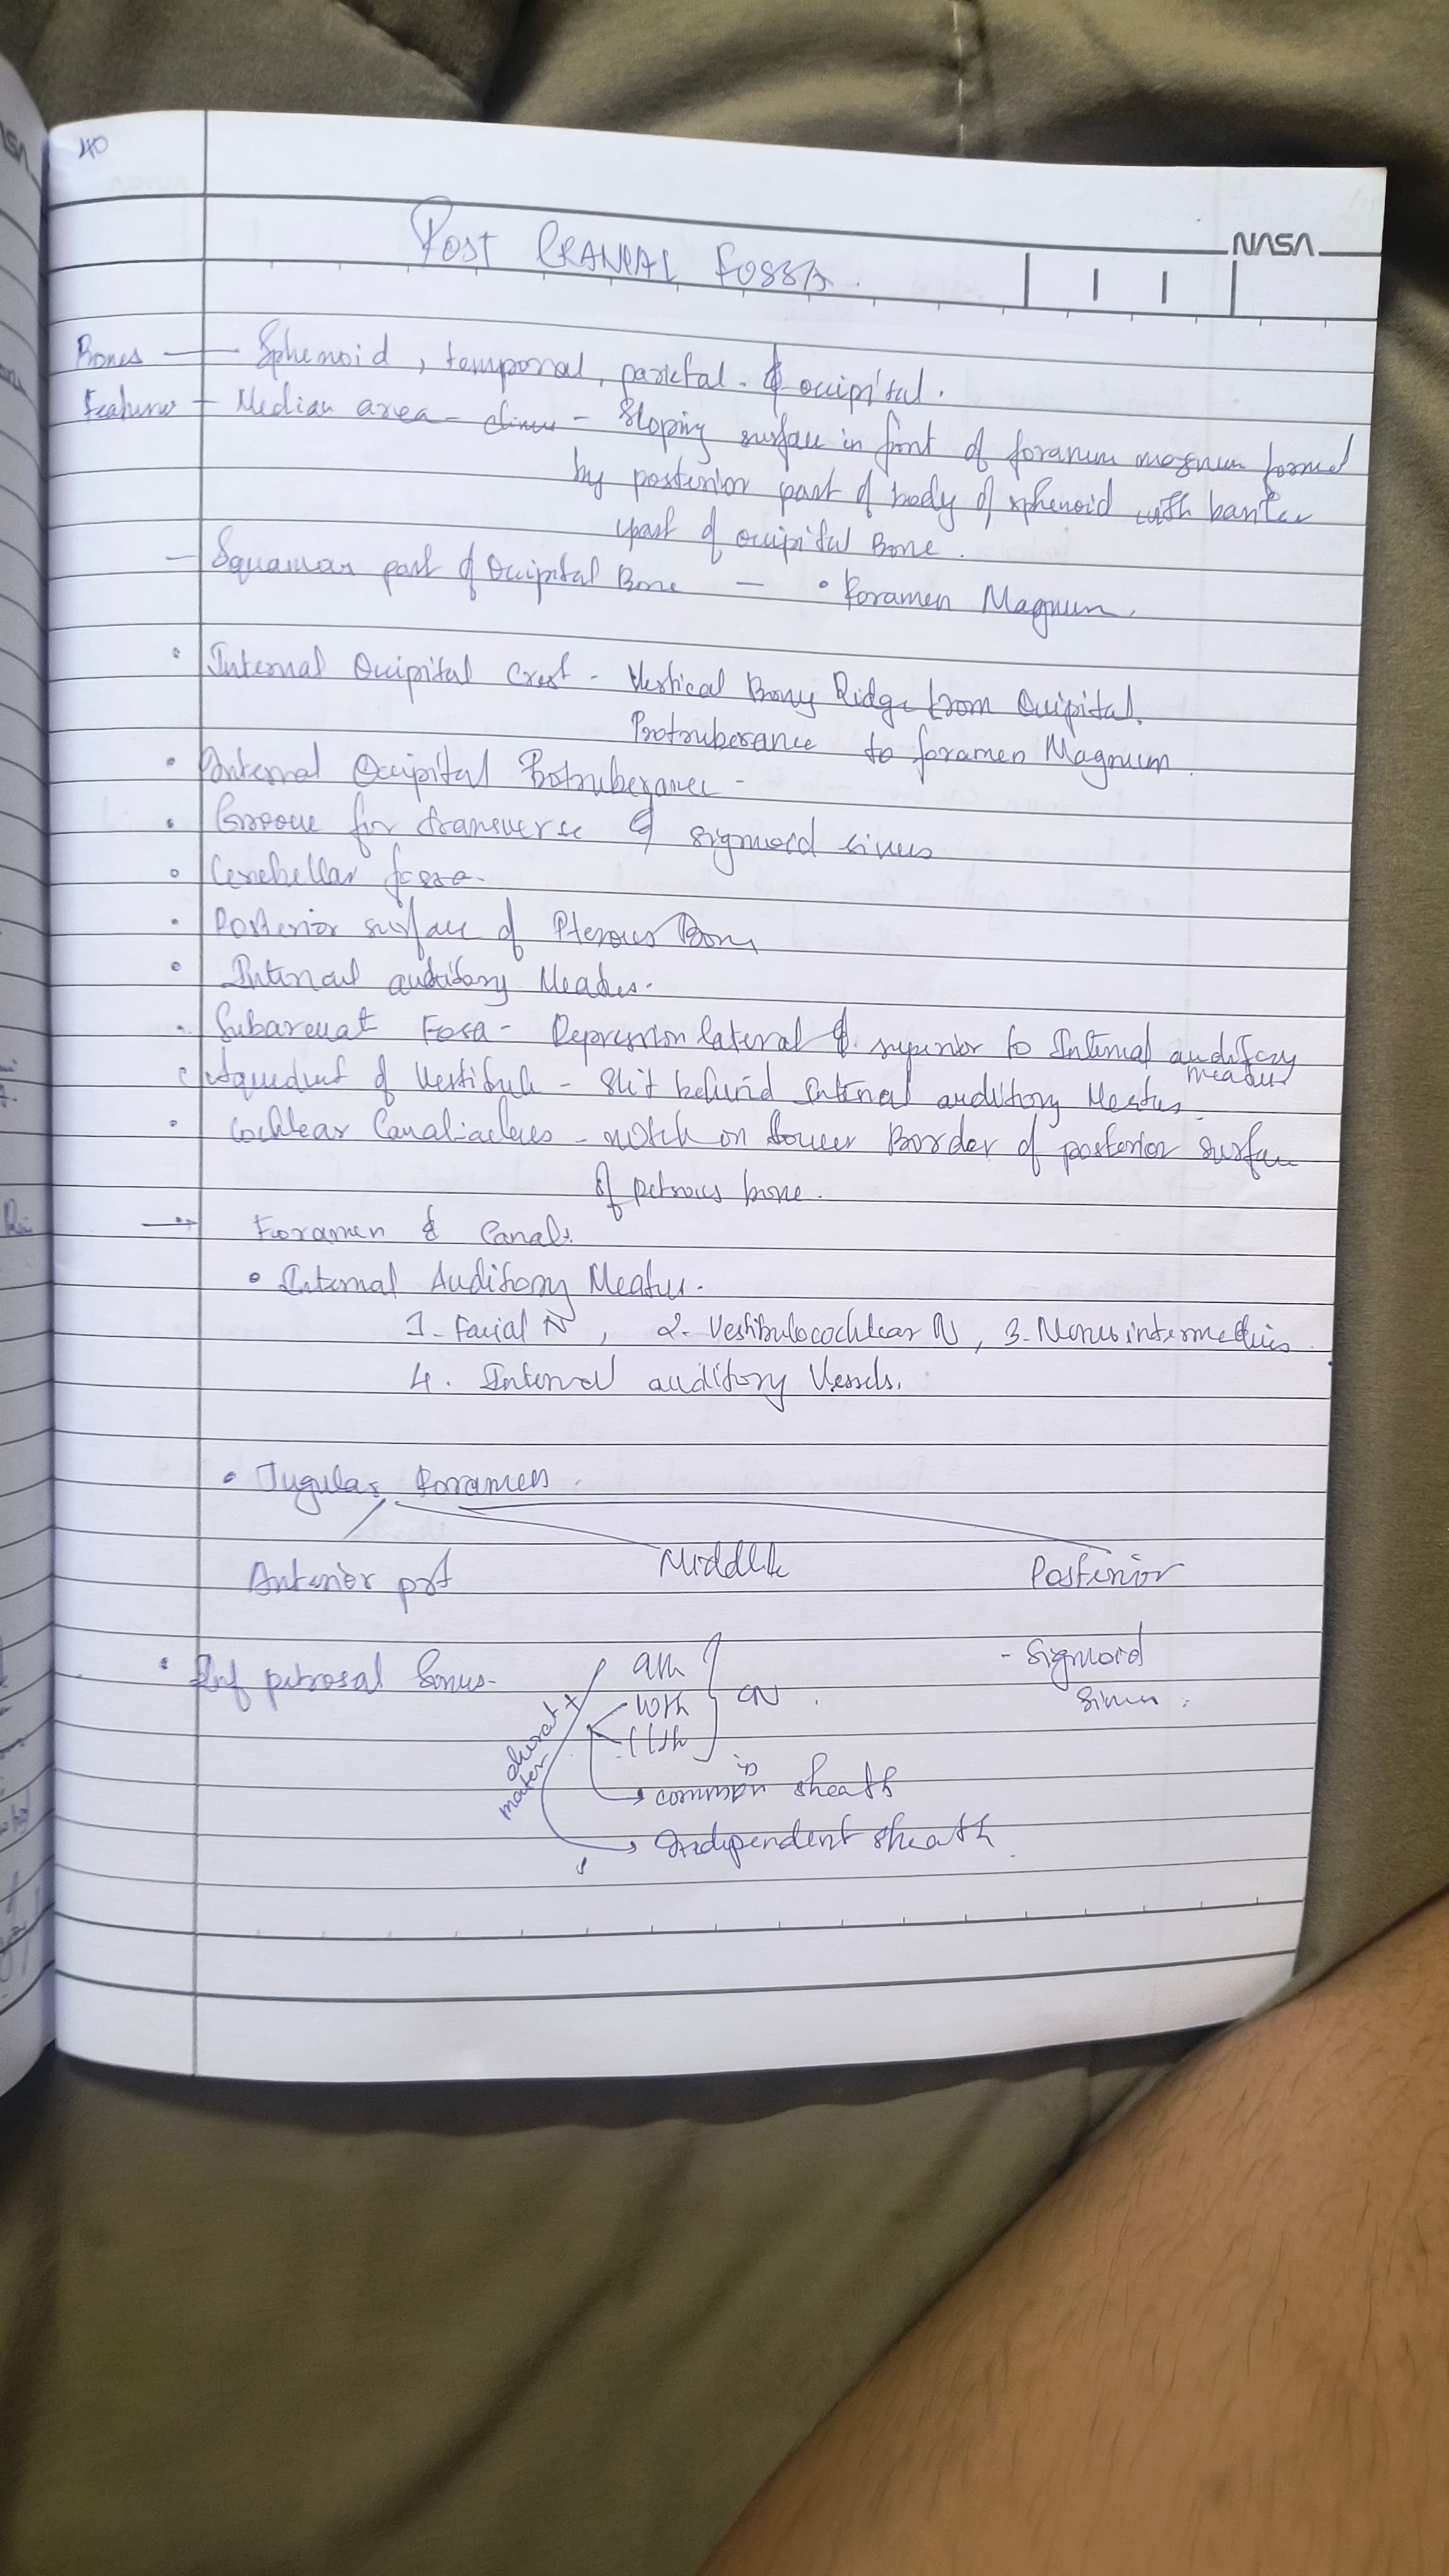 40
NASA
POST CRANIAL FOSSA.
Bones — Sphenoid, temporal, parietal & occipital.
Features - Median area - clivus - Sloping surface in front of foramen magnum formed
by posterior part of body of sphenoid with basilar
part of occipital Bone.
- Squamous part of Occipital Bone - • Foramen Magnum.
• Internal Occipital Crest - Vertical Bony Ridge from Occipital
Protruberance to foramen Magnum.
• Internal Occipital Protruberance -
• Groove for transverse & sigmoid sinus
• Cerebellar fossa.
• Posterior surface of Pterous Bone
• Internal auditory Meatus.
• Subarcuat Fossa - Depression lateral & superior to Internal auditory
meatus
• Aqueduct of Vestibule - Slit behind Internal auditory Meatus.
• Cochlear Canaliculus - notch on lower Border of posterior surface
of petrous bone.
→ Foramen & Canals.
• Internal Auditory Meatus.
1. Facial N, 2. Vestibulocochlear N, 3. Nervus intermedius
4. Internal auditory Vessels.
• Jugular Foramen.
Anterior prt Middle Posterior
• Inf petrosal Sinus- 9th - Sigmoid
10th CN. Sinus
11th
dural mater
in
common sheath
Independent sheath